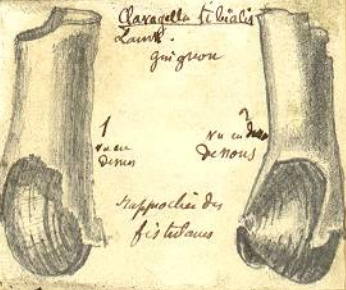 Clavagella tibialis
Lamk.
Grignon
1
vu en
dessus
2
vu en dessous
Rapprochée des
fistulanes